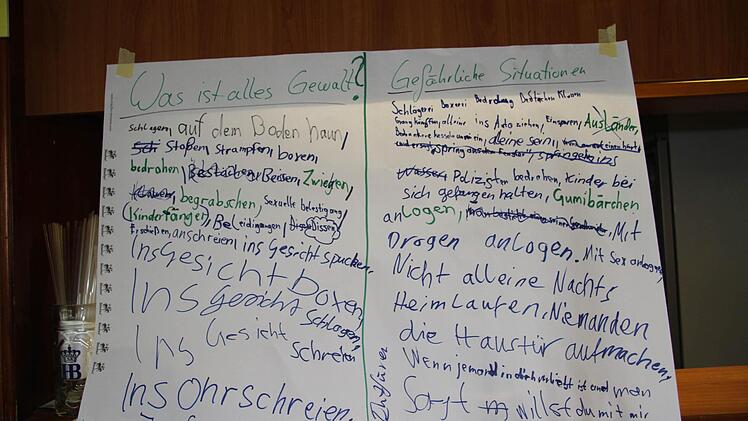 Was ist alles Gewalt?
Schlagen, auf dem Boden haun,
Stoßen, Strampfen, boxen,
bedrohen, Beissen, Zwicken,
begrabschen, Sexuelle belästigang,
(Kinderfänger), Beleidigungen, Dissen
Erschießen, anschreien, ins Gesicht spucken,
Ins Gesicht boxen,
Ins Gesicht Schlagen,
Ins Gesicht Schreien
Ins Ohr schreien.
Gefährliche Situationen
Schlägerei boxerei Bedrohung Bestächen Klauen
Gangkämpfen, alleine ins Auto ziehen, Einsparen, Ausländer,
alleine sein,
Polizisten bedrohen, Kinder bei
sich gefangen halten, Gumibärchen
anlogen, Mit
Drogen anlogen. Mit Sex anlogen,
Nicht alleine Nachts
Heim Laufen, Niemanden
die Haustür aufmachen,
Wenn jemand in dich verliebt ist und man
Sagt willst du mit mir
Entfüren
HB